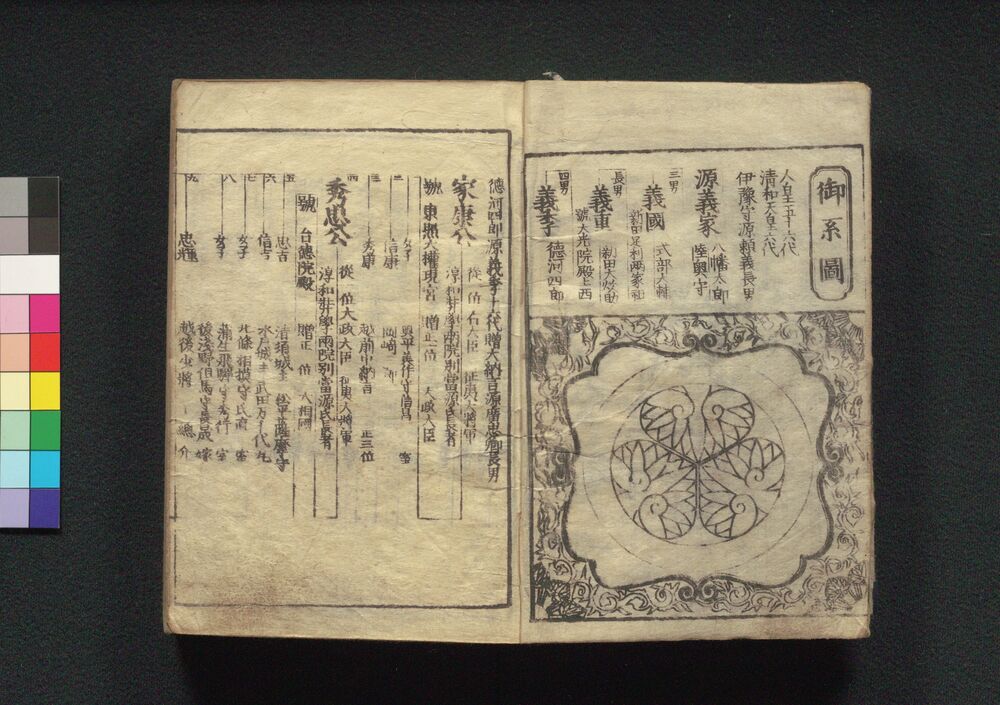 御系圖
人皇五十六代
清和天皇六代
伊豫守源頼義長男
源義家
八幡太郎
陸奥守
三男
義國
式部大輔
新田足利両家祖
長男
義重
新田大炊助
號大光院殿上西
四男
義季
徳河四郎
徳河四郎源義季十六代贈大納言源廣忠卿長男
家康公
従一位右大臣 征夷大将軍
淳和奨學両院別當源氏長者
號 東照大權現宮 贈正一位 太政大臣
女子
奥平美作守信昌 室
信康
岡崎三郎
秀康
越前中納言 正三位
四
秀忠公
従一位太政大臣 征夷大将軍
淳和奨學両院別當源氏長者
號 台徳院殿 贈正一位 大相國
五
忠吉
清須城主 松平薩摩守
六
信吉
水戸城主 武田万千代丸
七
女子
北條相模守氏直 室
八
女子
蒲生飛騨守秀行 室
後浅野但馬守長晟 嫁
九
忠輝
越後少将 上総介